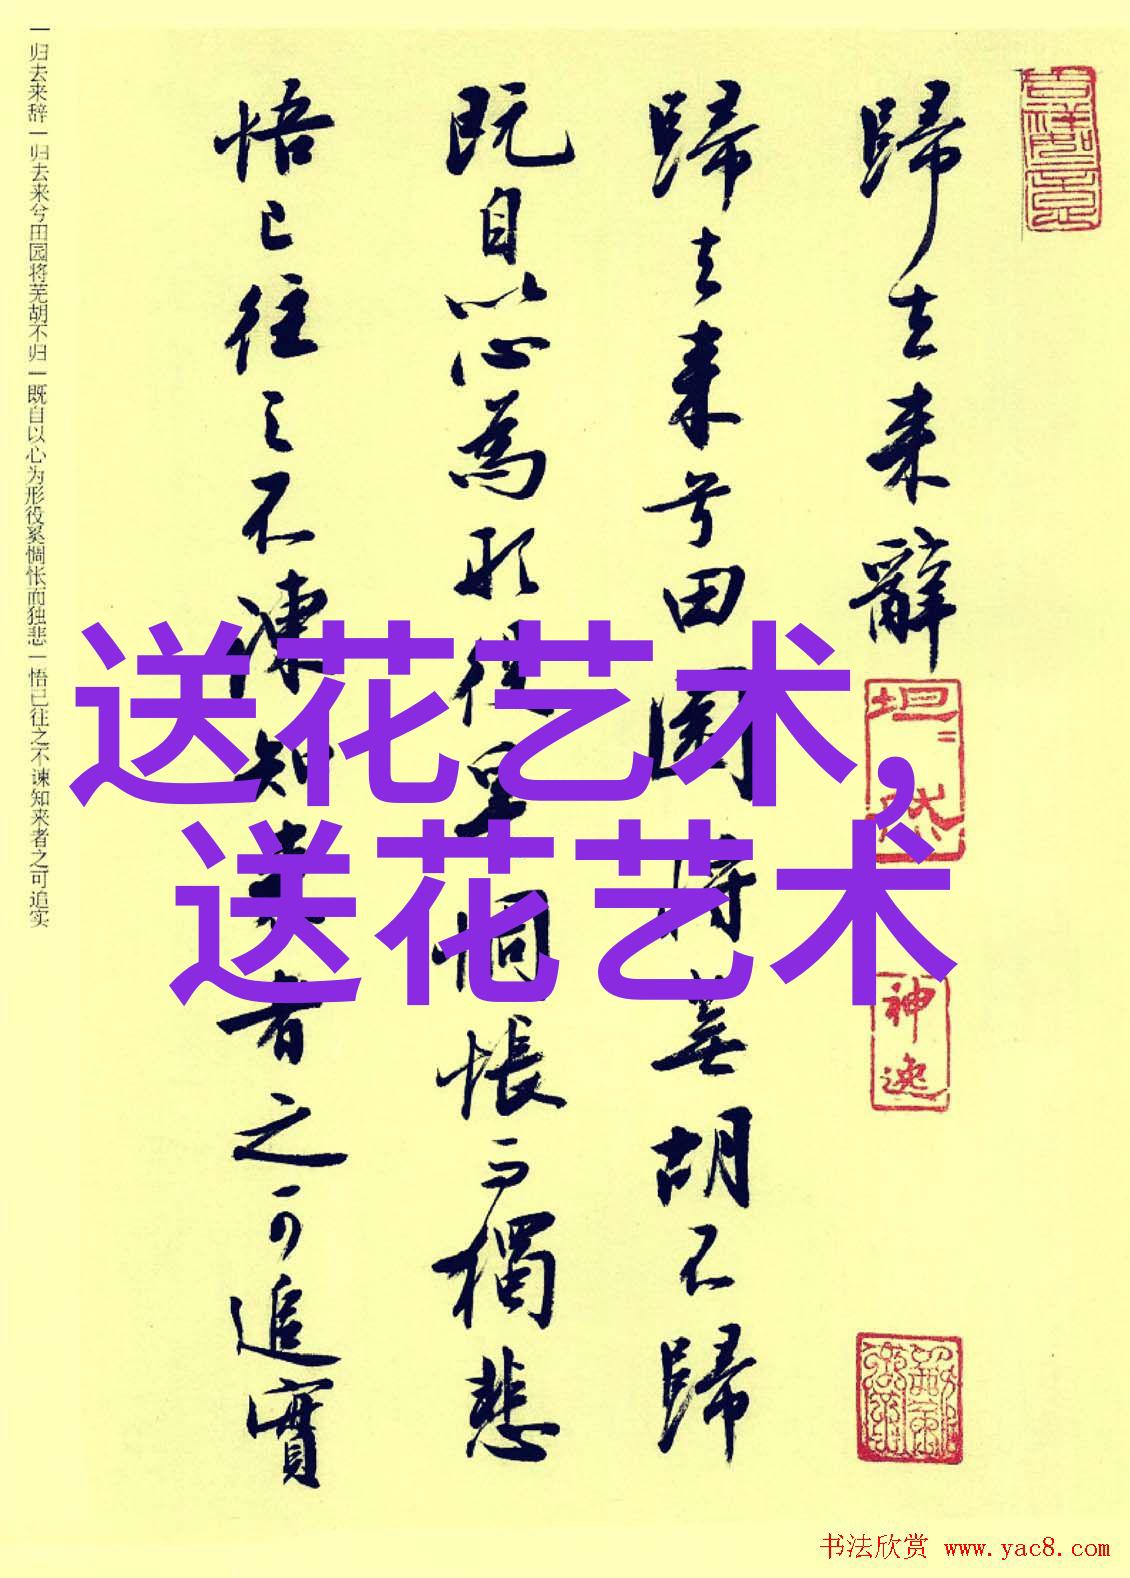 歸去来辭
歸去来兮田園将蕪胡不歸
既自以心為形役奚惆悵而獨悲
悟已往之不諫知来者之可追實
坦然
神逸
一归去来辞一归去来兮田园将芜胡不归一既自以心为形役奚惆怅而独悲一悟已往之不谏知来者之可追实
送花艺术,
送花艺术
书法欣赏 www.yac8.com